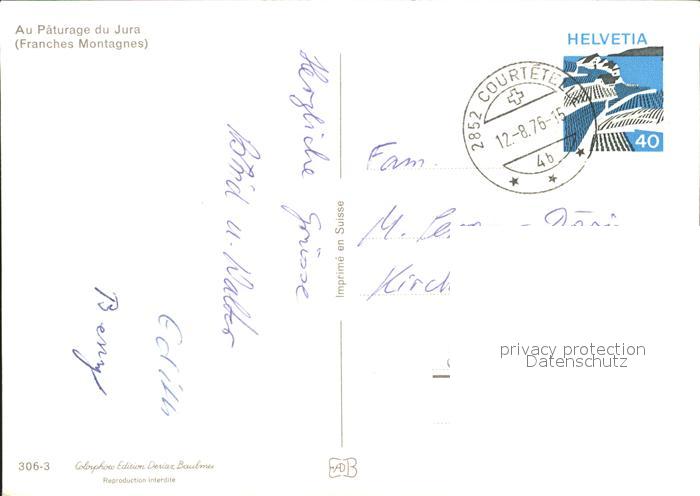 Au Pâturage du Jura
(Franches Montagnes)
Herzliche Grüsse
Astrid u. Walter
Edith
Benny
Imprimé en Suisse
HELVETIA
40
2852 COURTÉTEL
12.-8.76-15
4b
Fam.
M.
Kirch
privacy protection
Datenschutz
306-3
Colorphoto Edition Deriaz, Baulmes
Reproduction interdite